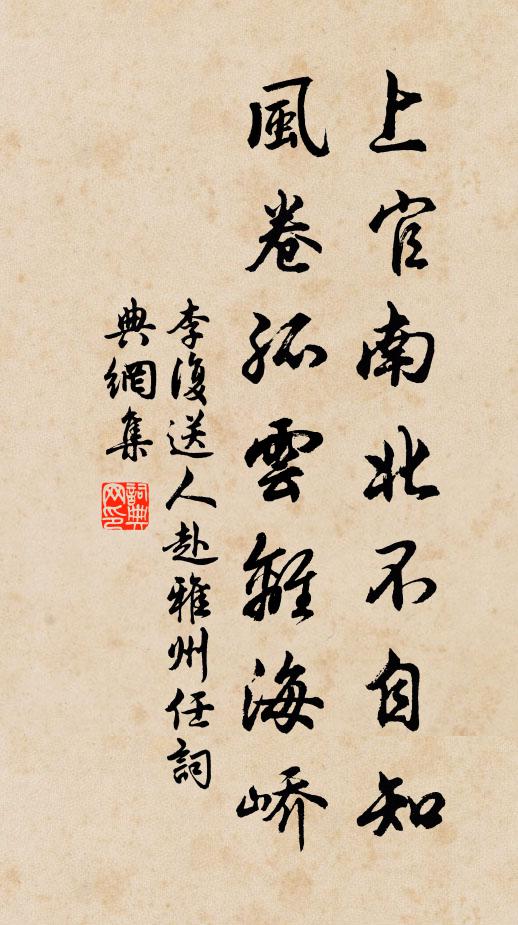 上官南北不自知
風卷孤雲離海嶠
李復送人赴雅州任詞
典網集
詞典网印